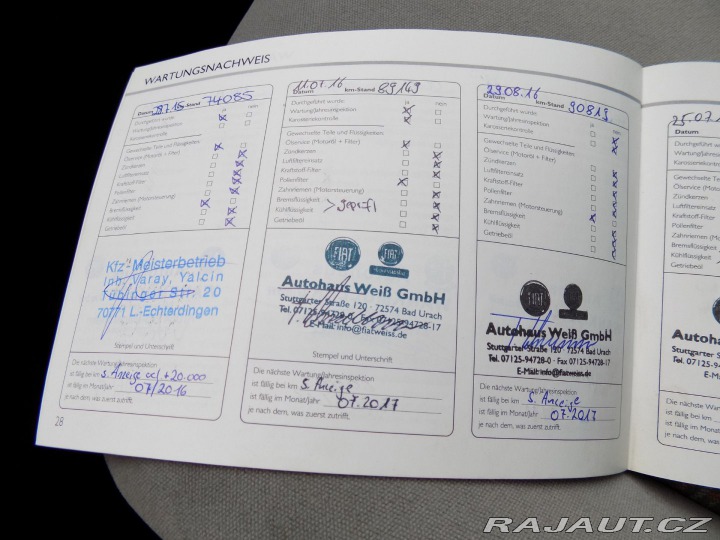 WARTUNGSNACHWEIS
74085
Datum
km-Stand
ja
nein
Durchgeführt wurde:
Wartung/Jahresinspektion
Karosseriekontrolle
Gewechselte Teile und Flüssigkeiten:
Ölservice (Motoröl + Filter)
Zündkerzen
Luftfiltereinsatz
Kraftstoff-Filter
Pollenfilter
Zahnriemen (Motorsteuerung)
Bremsflüssigkeit
Kühlflüssigkeit
Getriebeöl
Kfz-Meisterbetrieb
Inh. Varay, Yalcin
Tübinger Str. 20
70771 L.-Echterdingen
Stempel und Unterschrift
Die nächste Wartung/Jahresinspektion
ist fällig bei km S. Anzeige od. +20.000
ist fällig im Monat/Jahr 07/2016
je nach dem, was zuerst zutrifft.
28
11.07.16 89149
Datum km-Stand ja nein
Durchgeführt wurde:
Wartung/Jahresinspektion
Karosseriekontrolle
Gewechselte Teile und Flüssigkeiten:
Ölservice (Motoröl + Filter)
Zündkerzen
Luftfiltereinsatz
Kraftstoff-Filter
Pollenfilter
Zahnriemen (Motorsteuerung)
Bremsflüssigkeit
Kühlflüssigkeit
geprüft
Getriebeöl
FIAT
Autohaus Weiß GmbH
Stuttgarter Straße 120 · 72574 Bad Urach
Tel. 07125-94728-0 · Fax 07125-94728-17
E-Mail: info@fiatweiss.de
Stempel und Unterschrift
Die nächste Wartung/Jahresinspektion
ist fällig bei km S. Anzeige
ist fällig im Monat/Jahr 07.2017
je nach dem, was zuerst zutrifft.
29.08.16 90819
Datum km-Stand ja nein
Durchgeführt wurde:
Wartung/Jahresinspektion
Karosseriekontrolle
Gewechselte Teile und Flüssigkeiten:
Ölservice (Motoröl + Filter)
Zündkerzen
Luftfiltereinsatz
Kraftstoff-Filter
Pollenfilter
Zahnriemen (Motorsteuerung)
Bremsflüssigkeit
Kühlflüssigkeit
Getriebeöl
FIAT
Autohaus Weiß GmbH
Stuttgarter Straße 120 · 72574 Bad Urach
Tel. 07125-94728-0 · Fax: 07125-94728-17
E-Mail: info@fiatweiss.de
Die nächste Wartung/Jahresinspektion
ist fällig bei km S. Anzeige
ist fällig im Monat/Jahr 07.2017
je nach dem, was zuerst zutrifft.
25.07.1
Datum
Durchgeführt wurde:
Wartung/Jahresinsp
Karosseriekontrolle
Gewechselte Teile u
Ölservice (Motoröl
Zündkerzen
Luftfiltereinsatz
Kraftstoff-Filter
Pollenfilter
Zahnriemen (Moto
Bremsflüssigkeit
Kühlflüssigkeit
Getriebeöl
Autohau
Stuttgarter Str
Tel. 07125-94
E-M
Die nächste Wart
ist fällig bei km
ist fällig im Monat
je nach dem, was
RAJAUT.CZ